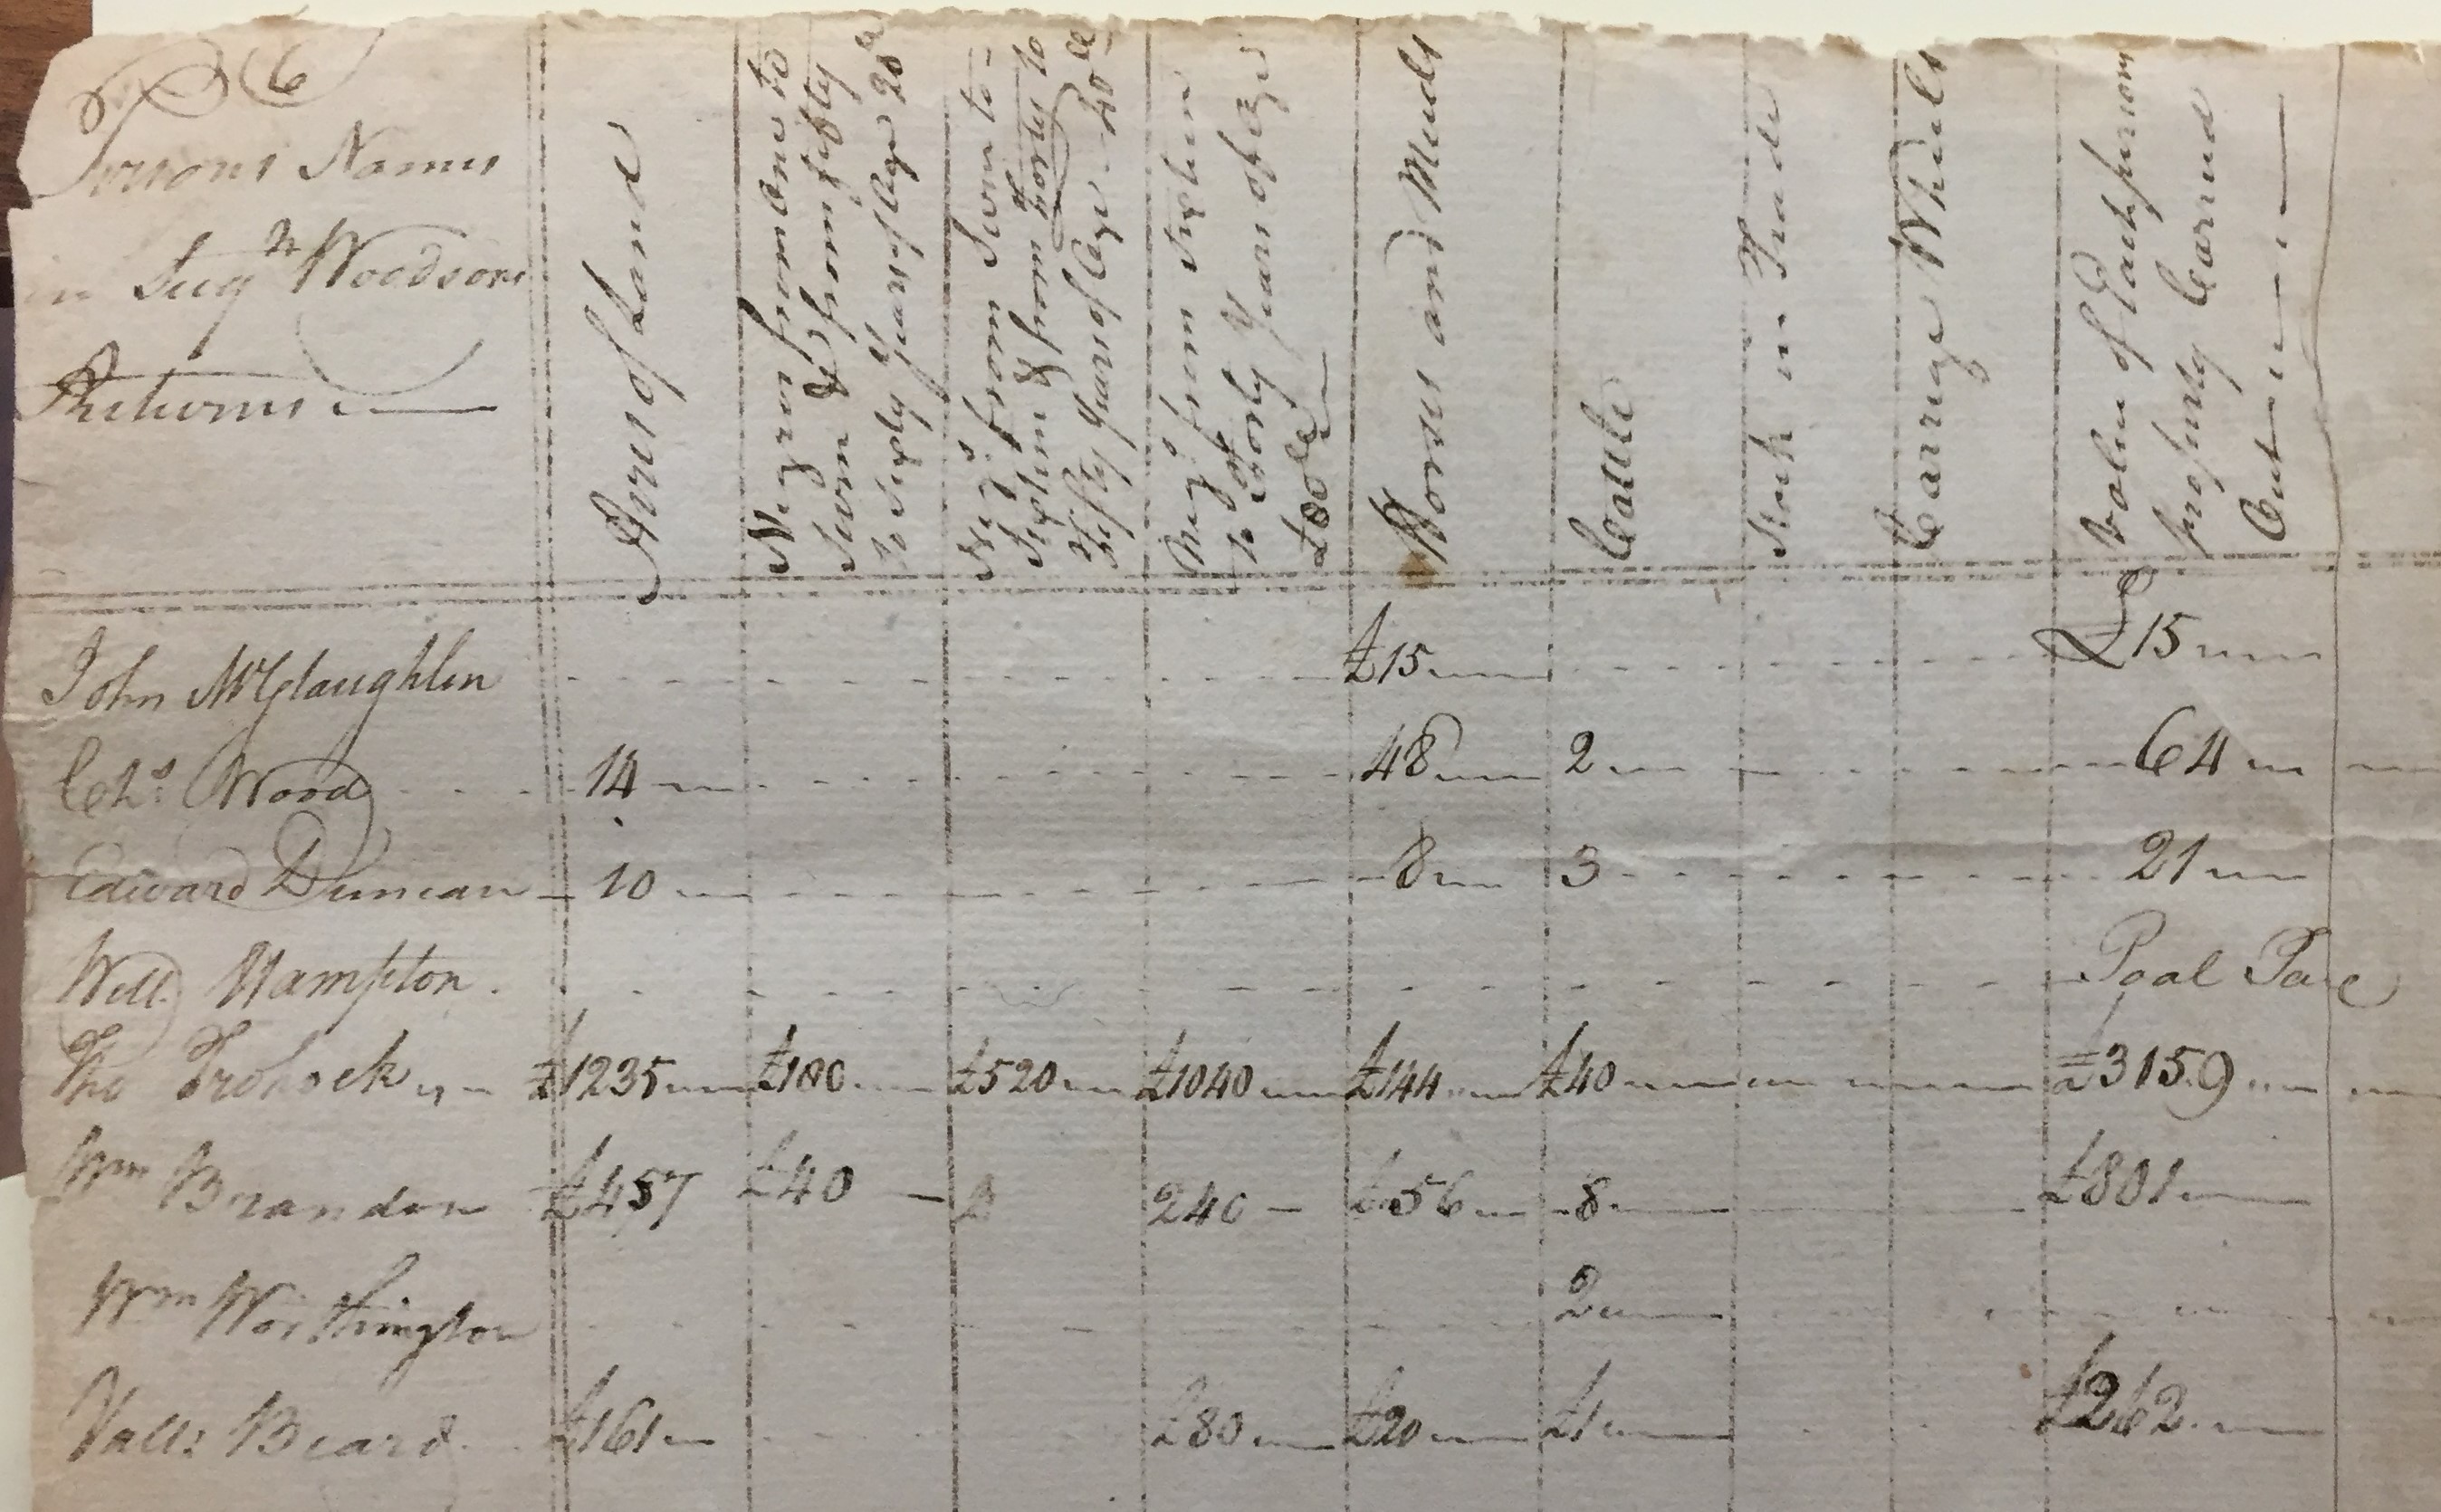 6
Persons Names
in Hugh Woodsons
Returns
Acres of Land
Negros from one to
Seven & from fifty
to Sixty Years of Age 20
Neg.s from Seven to
Sixteen & from Forty to
Fifty Years of Age 40
Neg.s from Sixteen
to Forty Years of Age
£80
Horses and Muels
Cattle
Stock in Trade
Carrage Wheels
Value of Each persons
property Carried
Out
John McGlaughlin £15 £15
Chs. Wood 14 48 2 64
Edward Duncan 10 8 3 21
Will. Hampton Poal Taxe
Tho Frohock £1235 £180 £520 £1040 £144 £40 £3159
Wm Brandon £457 £40 240 £56 8 £801
Wm Worthington 2
Vall: Beard £161 £80 £20 £1 £262